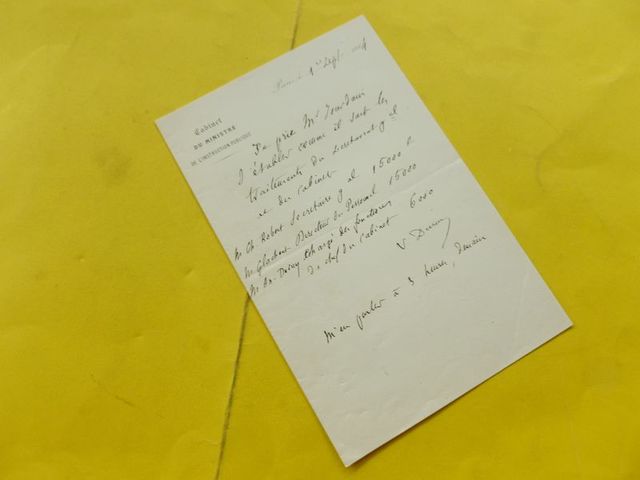 Cabinet
DU MINISTRE
DE L'INSTRUCTION PUBLIQUE
1er Sept
Je prie Mr Jourdain
d'établir comme il suit les
traitements du Secretariat gal
et du Cabinet
Mr Ch. Robert Secretaire gal 15000 f.
Mr Glachant Directeur du Personnel 15000
Mr An. Duruy chargé des fonctions
de chef du Cabinet 6000
V. Duruy
M'en parler à 3 heures, demain